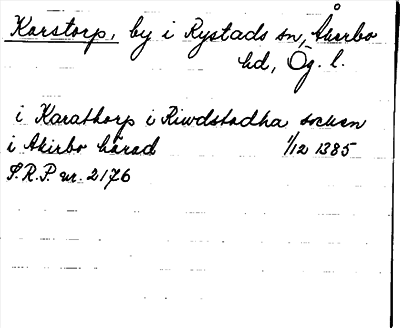 Karstorp, by i Rystads sn, Åkerbo
hd, Ög. l.
i Karathorp i Riwdstadha socken
i Akirbo härad 1/12 1385
S.R.P. nr. 2176